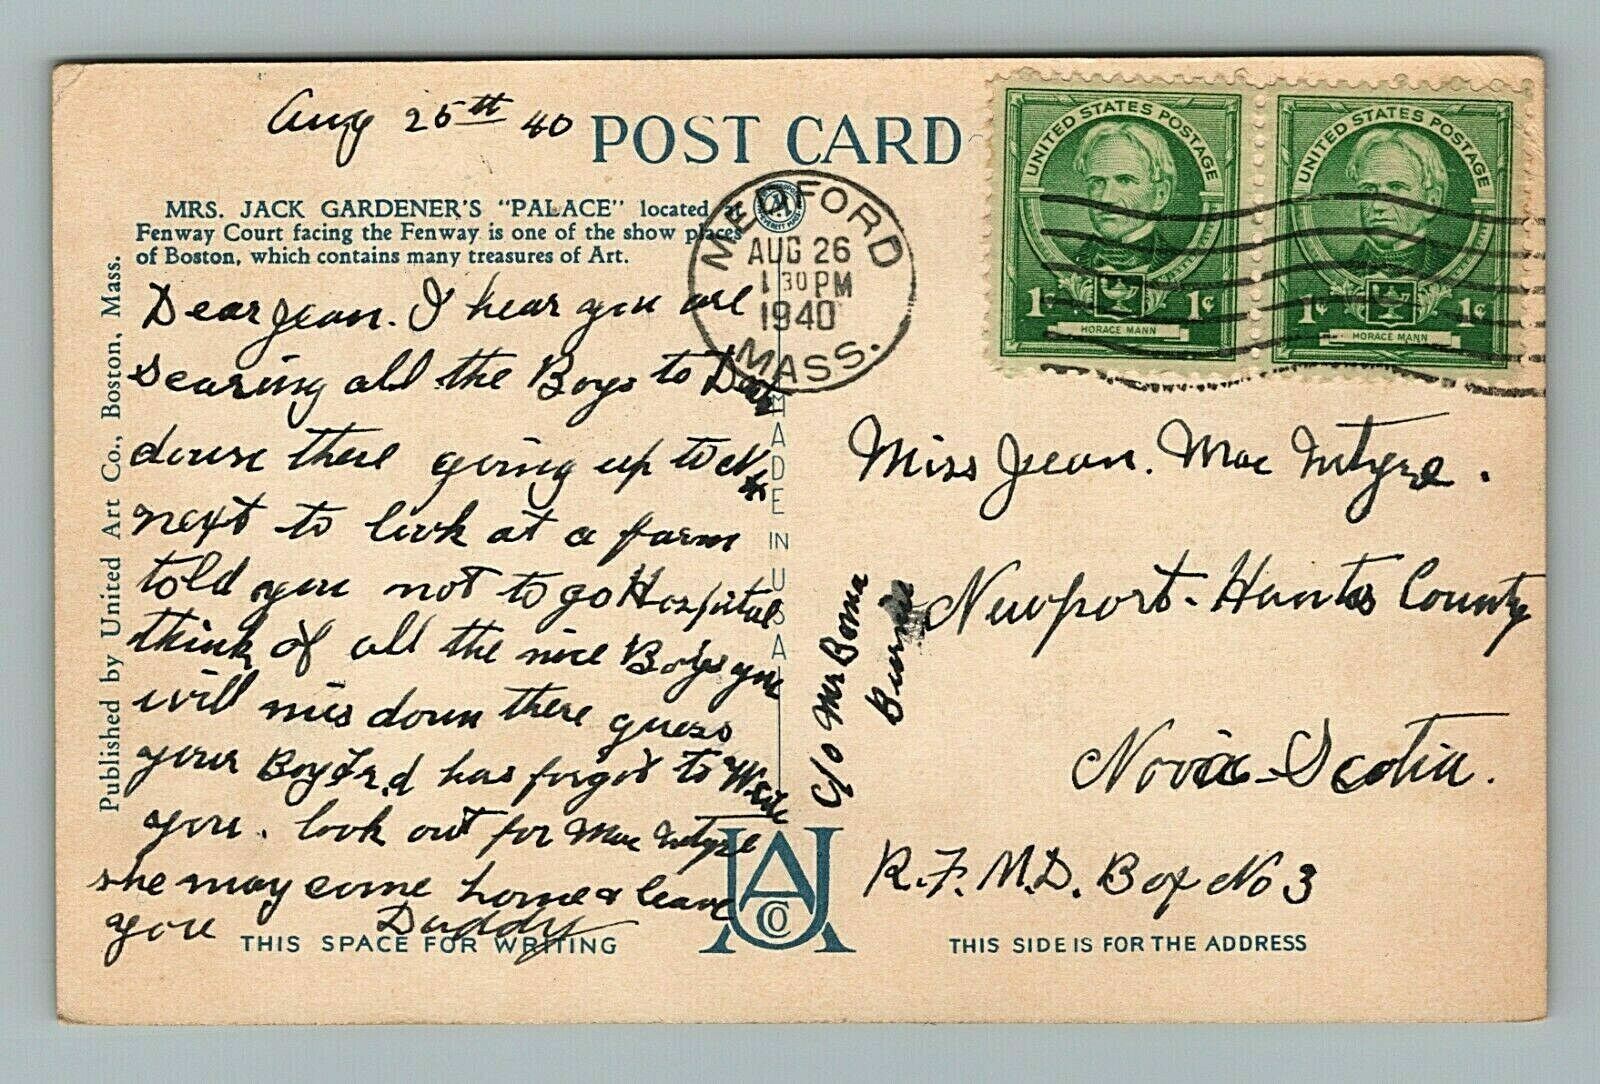 Aug 25th 40
POST CARD
MRS. JACK GARDENER'S "PALACE" located at
Fenway Court facing the Fenway is one of the show places
of Boston, which contains many treasures of Art.
Dear Jean. I hear you are
scaring all the Boys to Death
down there going up to N.H
next to look at a farm
told you not to go Hospital
think of all the nice Boys you
will mis down there guess
your Boy Frd has forgot to Write
you. look out for Mac Intyre
she may come home & leave
you Daddy
THIS SPACE FOR WRITING
Published by United Art Co., Boston, Mass.
MADE IN U.S.A.
UACo
MEDFORD
AUG 26
1 30 PM
1940
MASS.
UNITED STATES POSTAGE
1¢ 1¢
HORACE MANN
UNITED STATES POSTAGE
1¢ 1¢
HORACE MANN
Miss Jean. Mac Intyre.
Newport-Hants County
Nova-Scotia.
R.F.M.D. Box No 3
c/o Mr
THIS SIDE IS FOR THE ADDRESS